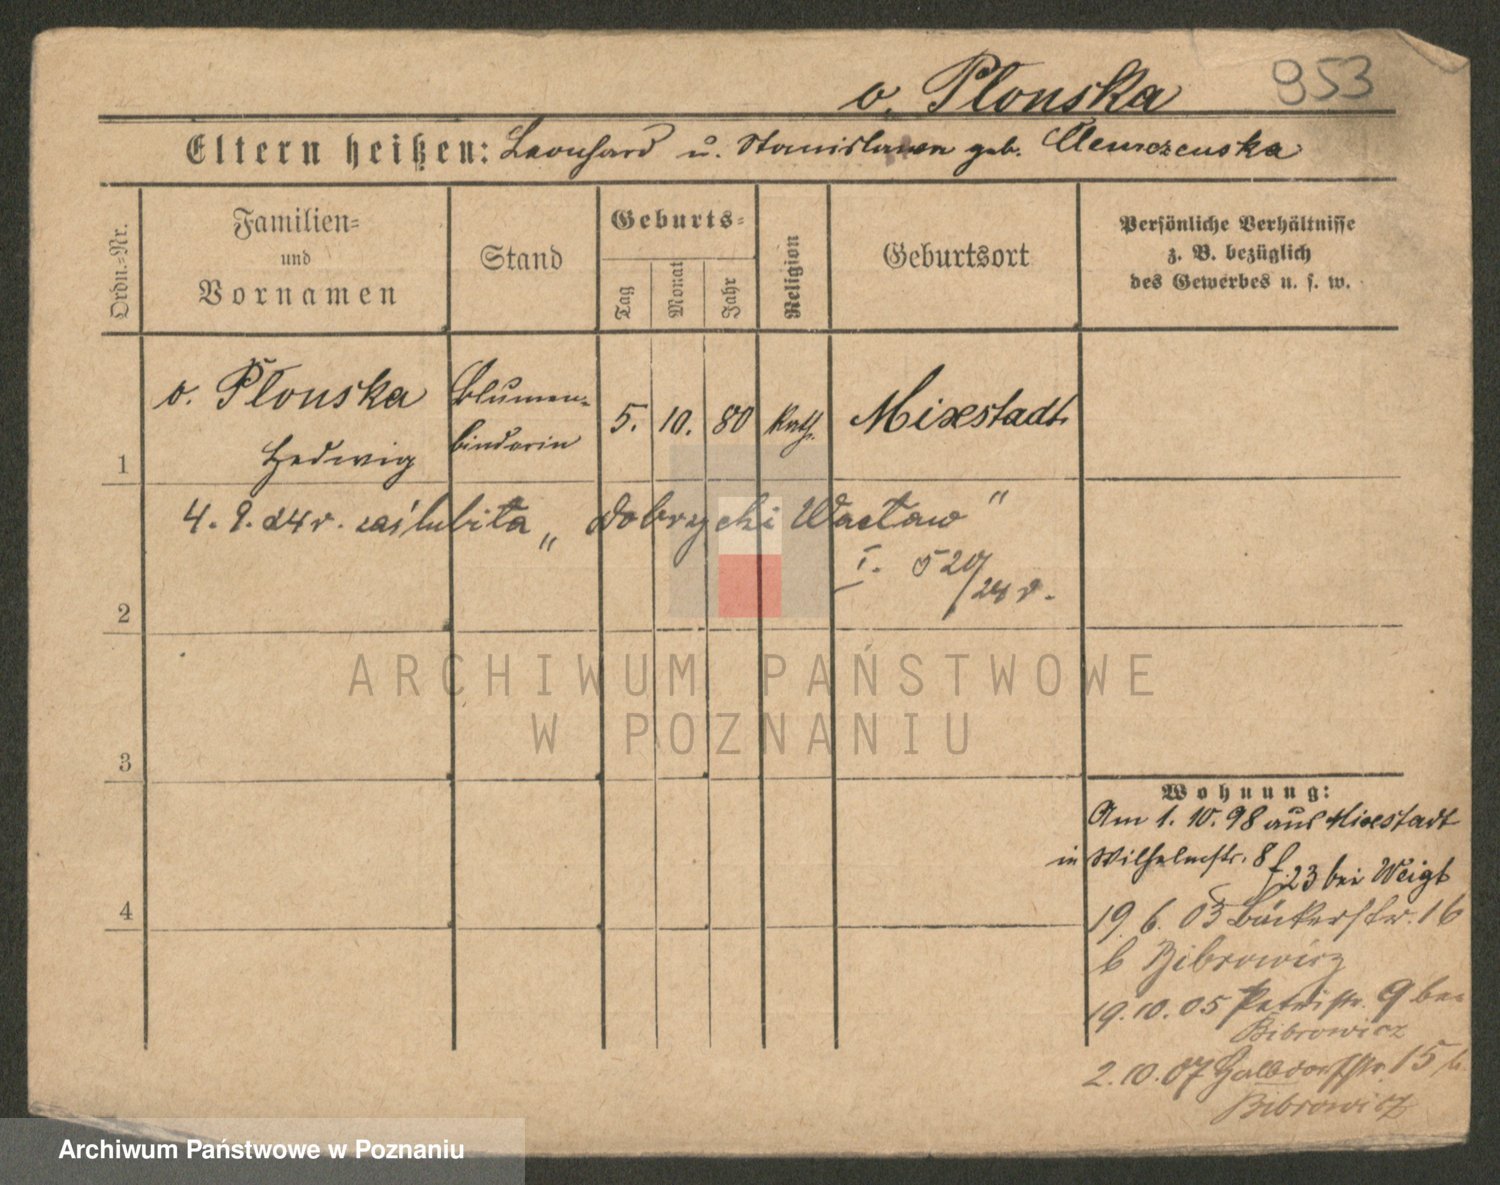 v. Płonska 953
Eltern heißen: Leonhard u. Stanislawa geb.
Ordn.-Nr.
Familien-
und
Vornamen
Stand
Geburts-
Tag
Monat
Jahr
Religion
Geburtsort
Persönliche Verhältnisse
z. B. bezüglich
des Gewerbes u. s. w.
1
v. Płonska
Hedwig
Blumen-
binderin
5. 10. 80 kath. Mixstadt
4. 9. 24 r. zaślubiła „Dobrzycki Wacław"
I. 520/24 r.
2
3
4
Wohnung:
Am 1. 10. 98 aus Mixstadt
in Wilhelmstr. 8
23 bei Weigt
19. 6. 03 Bäckerstr. 16
b Bibrowicz
19. 10. 05 Petristr. 9 bei
Bibrowicz
2. 10. 07 Halbdorfstr. 15 b.
Bibrowicz
ARCHIWUM PAŃSTWOWE
W POZNANIU
Archiwum Państwowe w Poznaniu